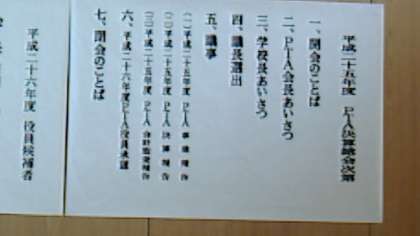 平成二十五年度 PTA決算総会次第
一、開会のことば
二、PTA会長あいさつ
三、学校長あいさつ
四、議長選出
五、議事
(一)平成二十五年度 PTA 事業報告
(二)平成二十五年度 PTA 決算報告
(三)平成二十五年度 PTA 会計監査報告
六、平成二十六年度PTA役員承認
七、閉会のことば
平成二十六年度 役員候補者